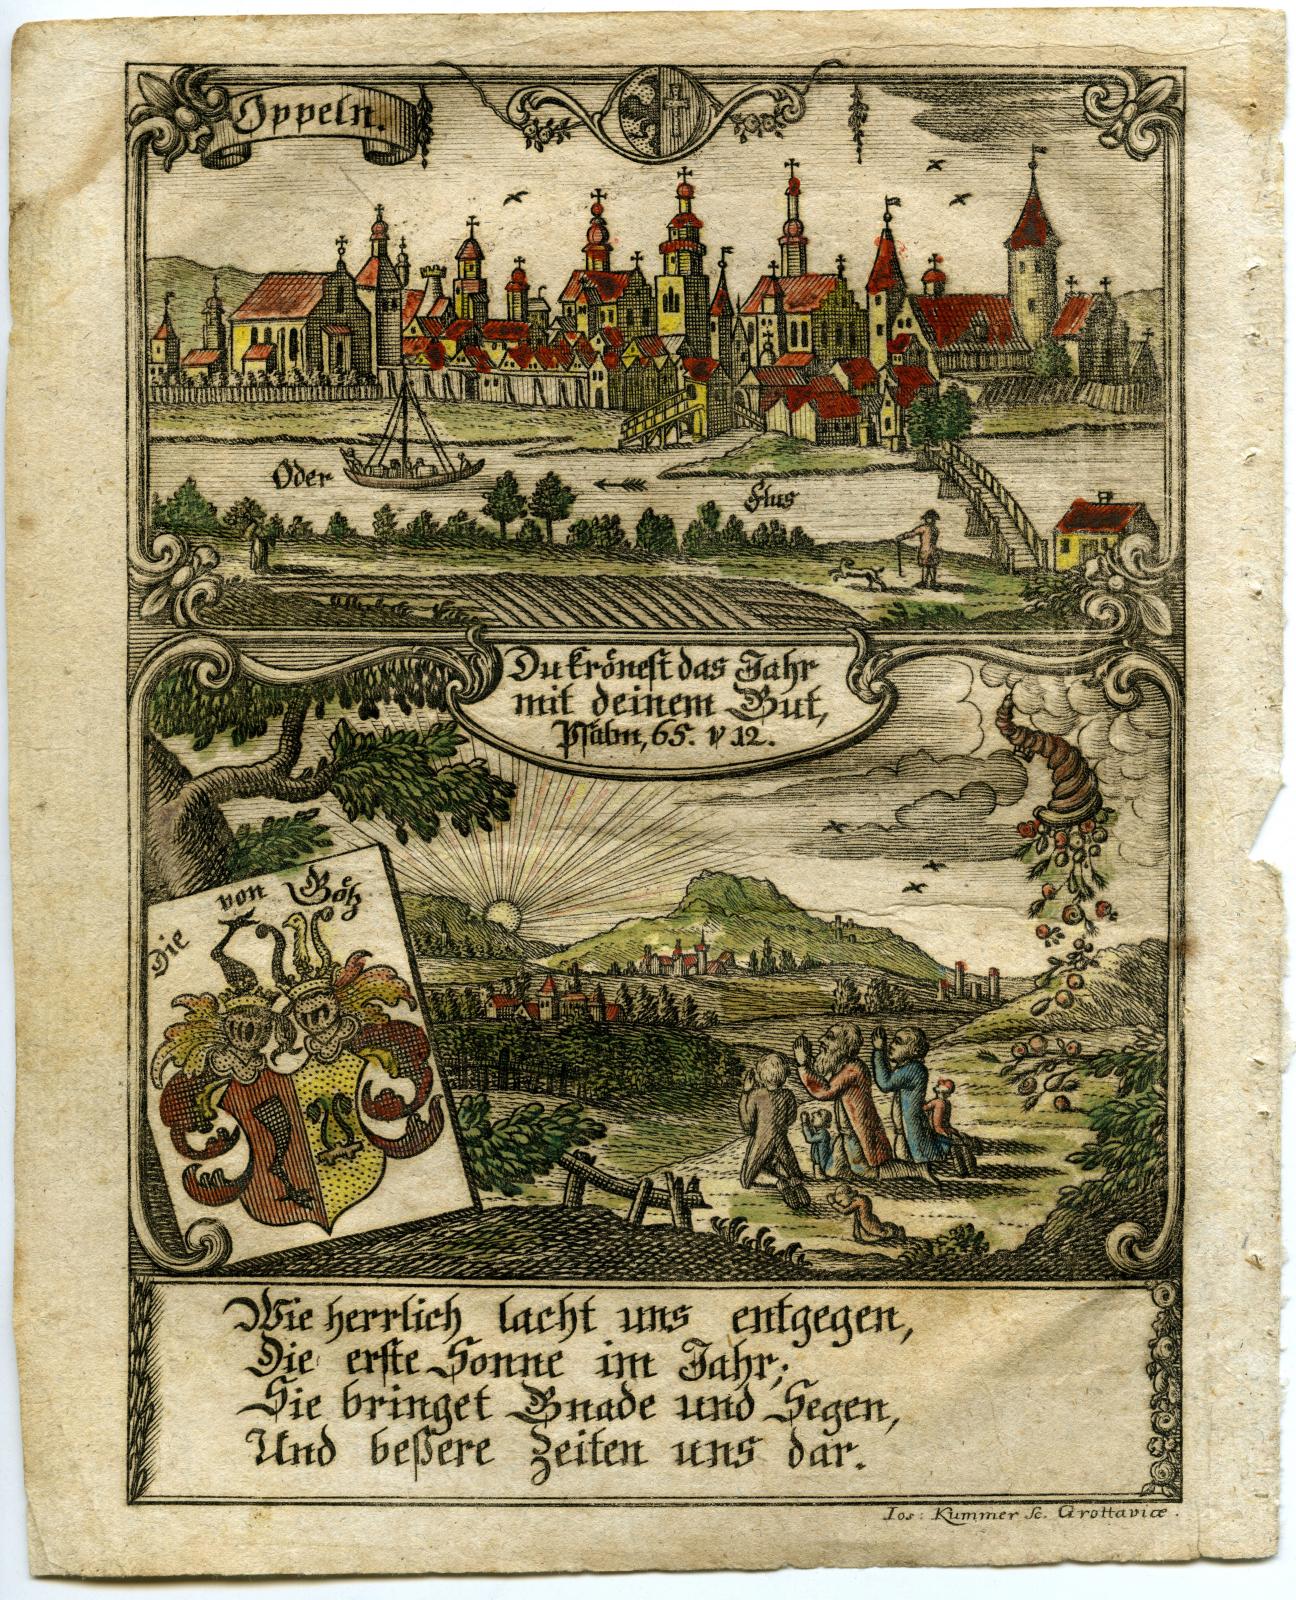 Oppeln.
Oder
Flus
Du krönest das Jahr
mit deinem Gut,
Psalm, 65. v 12.
Die von Götz
Wie herrlich lacht uns entgegen,
Die erste Sonne im Jahr;
Sie bringet Gnade und Segen,
Und beßere Zeiten uns dar.
Ios: Kummer Sc. Grottaviæ.